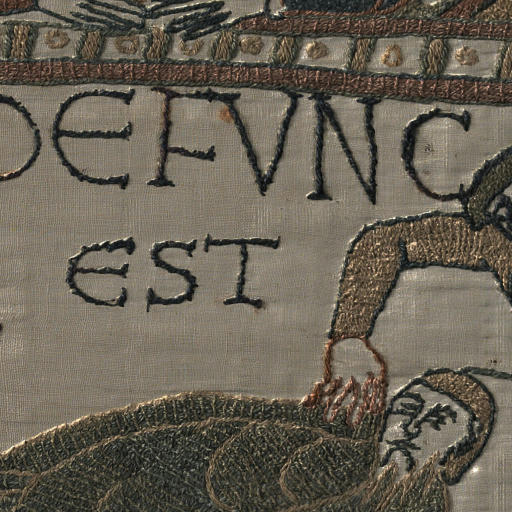 DEFVNC
EST